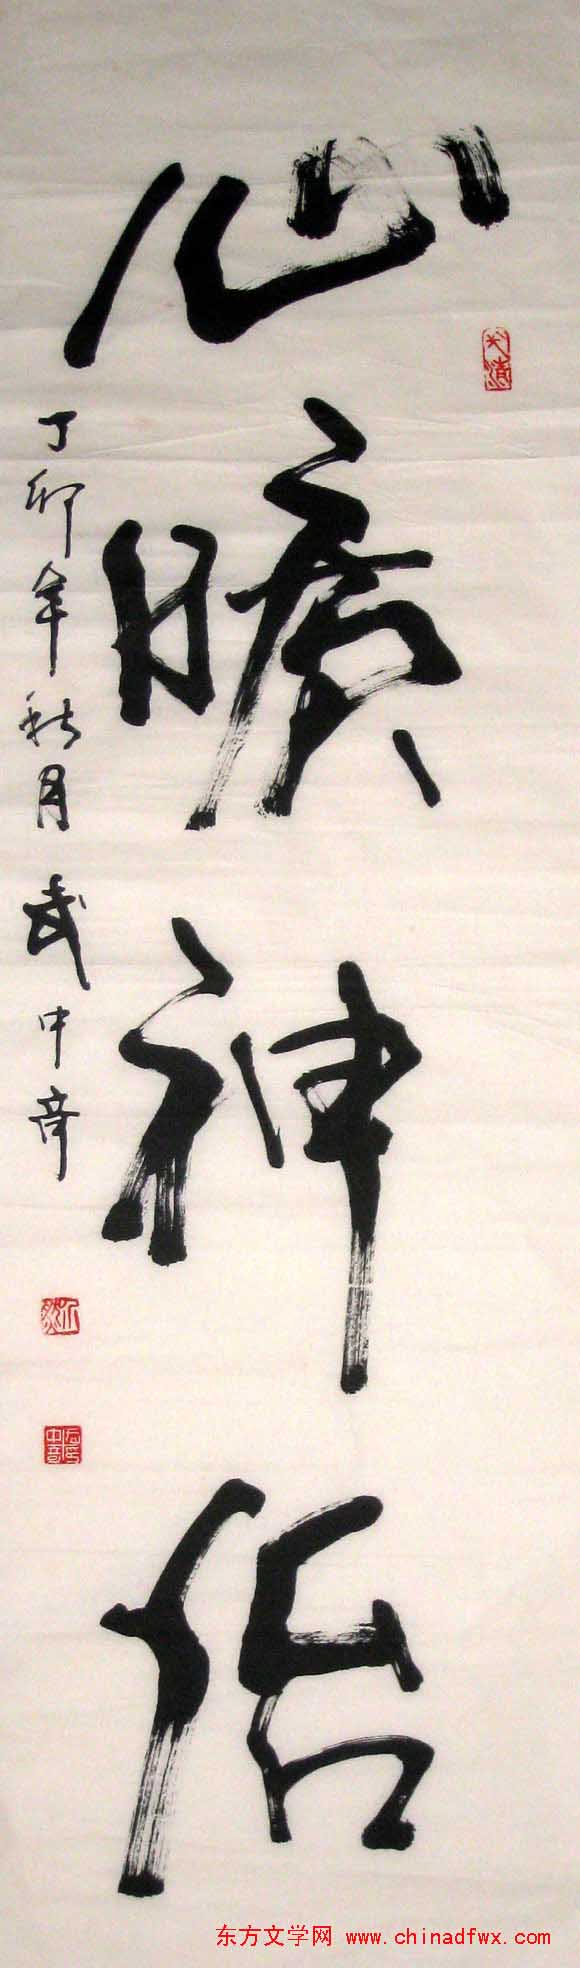 心曠神怡
丁卯年秋月武中奇
东方文学网 www.chinadfwx.com